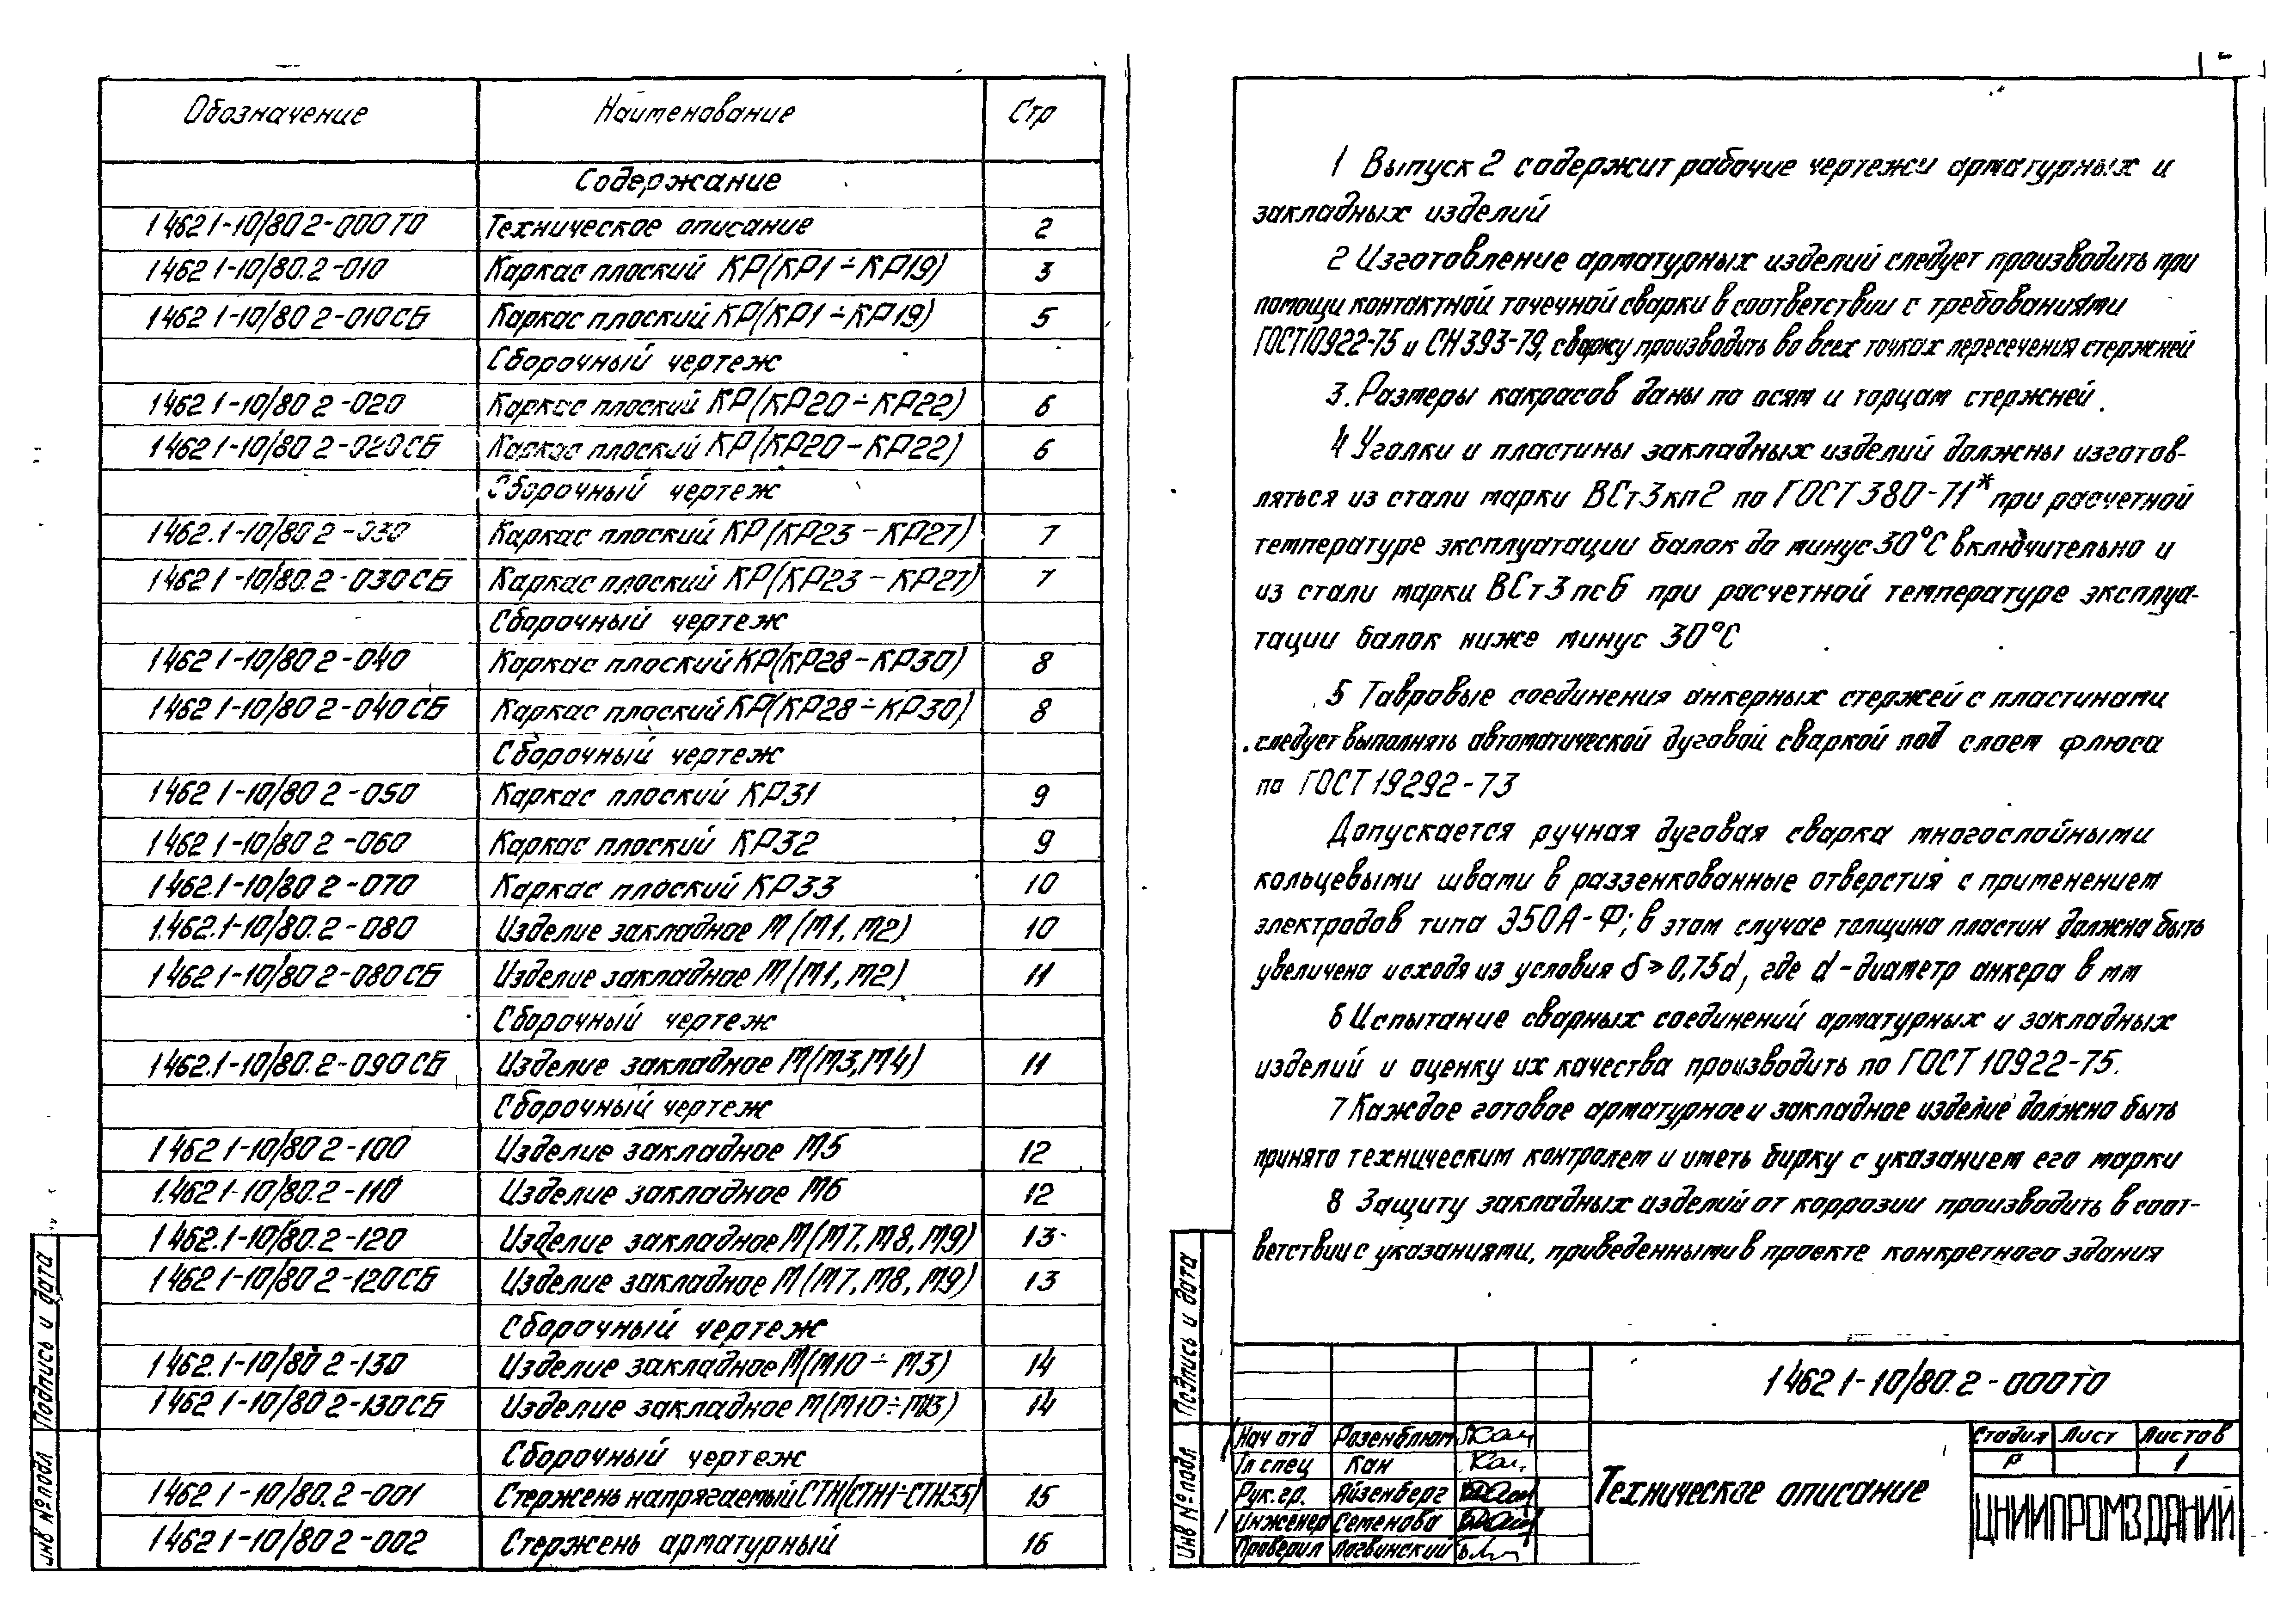 Обозначение Наименование Стр
Содержание
1 462 1-10/80 2-000ТО Техническое описание 2
1 462 1-10/80.2-010 Каркас плоский КР(КР1÷КР19) 3
1 462 1-10/80 2-010СБ Каркас плоский КР(КР1÷КР19) 5
Сборочный чертеж
1 462 1-10/80 2-020 Каркас плоский КР(КР20÷КР22) 6
1 462 1-10/80 2-020СБ Каркас плоский КР(КР20-КР22) 6
Сборочный чертеж
1 462.1-10/80 2-030 Каркас плоский КР(КР23-КР27) 7
1 462 1-10/80.2-030СБ Каркас плоский КР(КР23-КР27) 7
Сборочный чертеж
1 462 1-10/80 2-040 Каркас плоский КР(КР28-КР30) 8
1 462 1-10/80 2-040СБ Каркас плоский КР(КР28÷КР30) 8
Сборочный чертеж
1 462 1-10/80 2-050 Каркас плоский КР31 9
1 462 1-10/80 2-060 Каркас плоский КР32 9
1 462.1-10/80 2-070 Каркас плоский КР33 10
1.462.1-10/80.2-080 Изделие закладное М(М1, М2) 10
1 462 1-10/80 2-080СБ Изделие закладное М(М1, М2) 11
Сборочный чертеж
1 462.1-10/80.2-090СБ Изделие закладное М(М3,М4) 11
Сборочный чертеж
1 462 1-10/80 2-100 Изделие закладное М5 12
1.462 1-10/80.2-110 Изделие закладное М6 12
1 462.1-10/80.2-120 Изделие закладное М(М7, М8, М9) 13
1 462 1-10/80 2-120СБ Изделие закладное М(М7, М8, М9) 13
Сборочный чертеж
1 462.1-10/80 2-130 Изделие закладное М(М10÷М3) 14
1 462 1-10/80 2-130СБ Изделие закладное М(М10÷М13) 14
Сборочный чертеж
1 462 1-10/80.2-001 Стержень напрягаемый СТН(СТН1÷СТН35) 15
1 462 1-10/80 2-002 Стержень арматурный 16
Подпись и дата
инв № подл
1 Выпуск 2 содержит рабочие чертежи арматурных и
закладных изделий
2 Изготовление арматурных изделий следует производить при
помощи контактной точечной сварки в соответствии с требованиями
ГОСТ10922-75 и СН 393-79, сварку производить во всех точках пересечения стержней
3. Размеры какрасов даны по осям и торцам стержней.
4 Уголки и пластины закладных изделий должны изготов-
ляться из стали марки ВСт3кп2 по ГОСТ 380-71* при расчетной
температуре эксплуатации балок до минус 30°С включительно и
из стали марки ВСт3пс6 при расчетной температуре эксплуа-
тации балок ниже минус 30°С
5 Тавровые соединения анкерных стержей с пластинами
следует выполнять автоматической дуговой сваркой под слоем флюса
по ГОСТ 19292-73
Допускается ручная дуговая сварка многослойными
кольцевыми швами в раззенкованные отверстия с применением
электродов типа Э50А-Ф; в этом случае толщина пластин должна быть
увеличена исходя из условия δ≥0,75d, где d-диаметр анкера в мм
6 Испытание сварных соединений арматурных и закладных
изделий и оценку их качества производить по ГОСТ 10922-75.
7 Каждое готовое арматурное и закладное изделие должно быть
принято техническим контролем и иметь бирку с указанием его марки
8 Защиту закладных изделий от коррозии производить в соот-
ветствии с указаниями, приведенными в проекте конкретного здания
Подпись и дата
Инв № подл
1 462 1-10/80.2-000ТО
Нач отд Розенблюм
Гл спец Кан
Рук.гр. Айзенберг
Инженер Семенова
Проверил Логвинский
Техническое описание
Стадия Лист Листов
Р 1
ЦНИИПРОМЗДАНИЙ